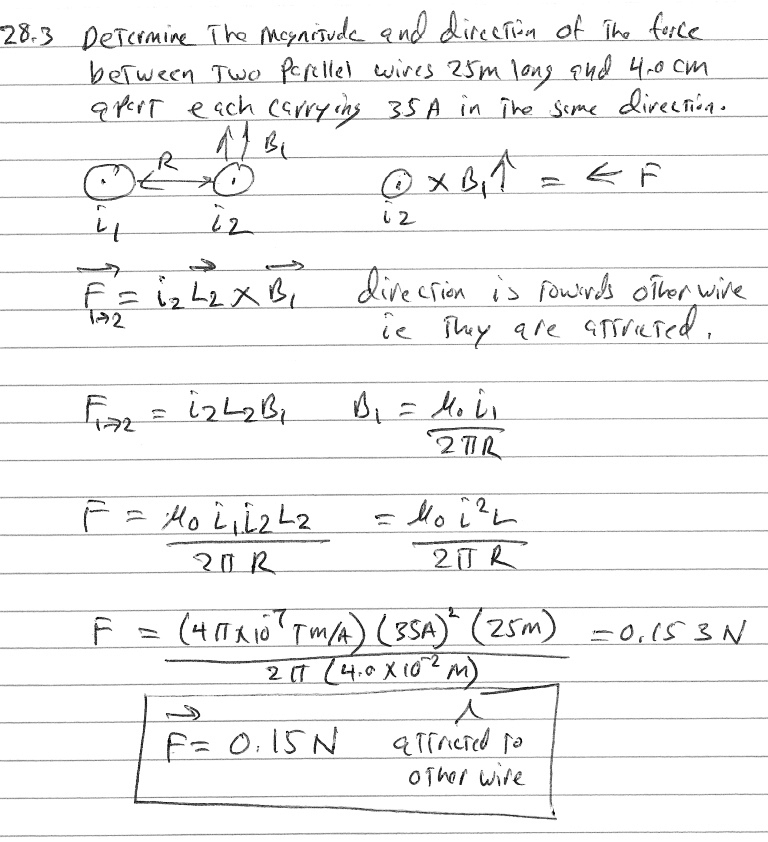 28.3 Determine The magnitude and direction of The force
between Two Parallel wires 25m long and 4.0 cm
apart each carrying 35A in The same direction.
↑↑ B₁
⊙ ←R→ ⊙ ⊙ × B₁↑ = ← F
i₁ i₂ i₂
F⃗₁→₂ = i₂ L⃗₂ × B⃗₁ direction is Towards other wire
ie They are attracted.
F₁→₂ = i₂L₂B₁ B₁ = μ₀ i₁ / 2πR
F = μ₀ i₁i₂L₂ / 2πR = μ₀ i²L / 2πR
F = (4π×10⁻⁷ Tm/A) (35A)² (25m) / 2π (4.0 × 10⁻² m) = 0.153 N
F⃗ = 0.15 N attracted to
other wire